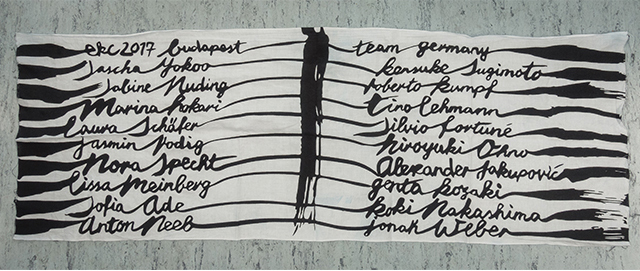 ekc 2017 budapest
Sascha Yokoo
Sabine Nuding
Marina Hokari
Laura Schäfer
Jasmin Rodig
Nora Specht
Lissa Meinberg
Sofia Ade
Anton Neeb
team germany
kensuke Sugimoto
roberto kumpf
tino lehmann
silvio fortuné
hiroyuki Ohno
Alexander Jakupović
genta kozaki
koki Nakashima
Jonah Weber